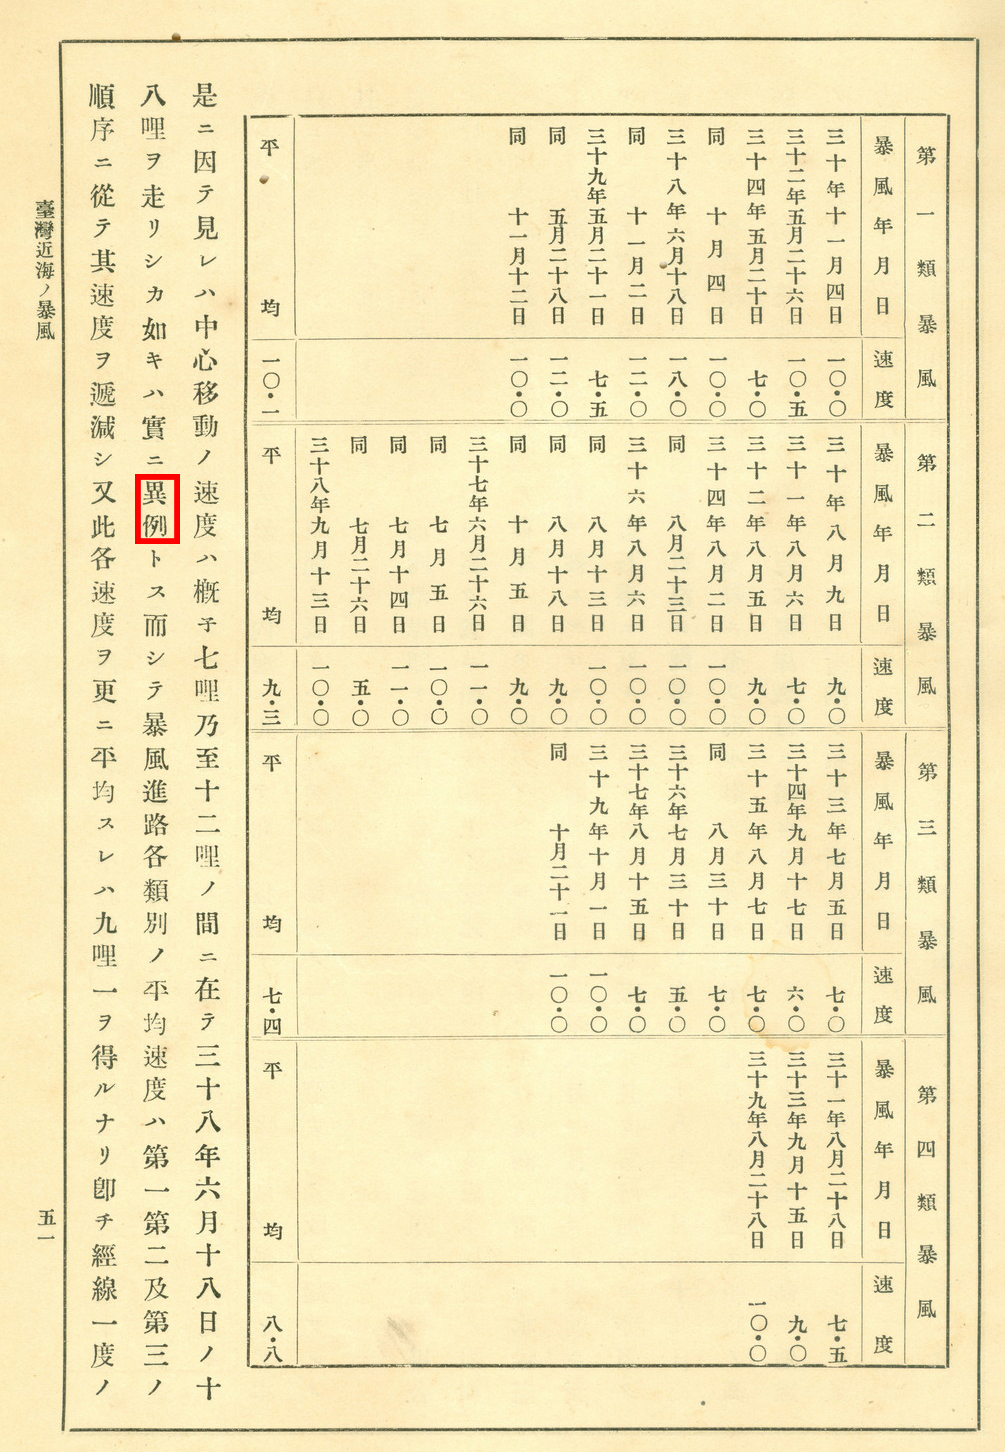 第一類暴風
暴風年月日 速度
三十年十一月四日 一〇・〇
三十二年五月二十六日 一〇・五
三十四年五月二十日 七・〇
同 十月四日 一〇・〇
三十八年六月十八日 一八・〇
同 十一月二日 一二・〇
三十九年五月二十一日 七・五
同 五月二十八日 一二・〇
同 十一月十二日 一〇・〇
平均 一〇・一
第二類暴風
暴風年月日 速度
三十年八月九日 九・〇
三十一年八月六日 七・〇
三十二年八月五日 九・〇
三十四年八月二日 一〇・〇
同 八月二十三日 一〇・〇
三十六年八月六日 一〇・〇
同 八月十三日 一〇・〇
同 八月十八日 九・〇
同 十月五日 九・〇
三十七年六月二十六日 一一・〇
同 七月五日 一〇・〇
同 七月十四日 一一・〇
同 七月二十六日 五・〇
三十八年九月十三日 一〇・〇
平均 九・三
第三類暴風
暴風年月日 速度
三十三年七月五日 七・〇
三十四年九月十七日 六・〇
三十五年八月七日 七・〇
同 八月三十日 七・〇
三十六年七月三十日 五・〇
三十七年八月十五日 七・〇
三十九年十月一日 一〇・〇
同 十月二十一日 一〇・〇
平均 七・四
第四類暴風
暴風年月日 速度
三十一年八月二十八日 七・五
三十三年九月十五日 九・〇
三十九年八月二十八日 一〇・〇
平均 八・八
是ニ因テ見レハ中心移動ノ速度ハ概子七哩乃至十二哩ノ間ニ在テ三十八年六月十八日ノ十
八哩ヲ走リシカ如キハ實ニ異例トス而シテ暴風進路各類別ノ平均速度ハ第一第二及第三ノ
順序ニ從テ其速度ヲ遞減シ又此各速度ヲ更ニ平均スレハ九哩一ヲ得ルナリ卽チ經線一度ノ
臺灣近海ノ暴風
五一